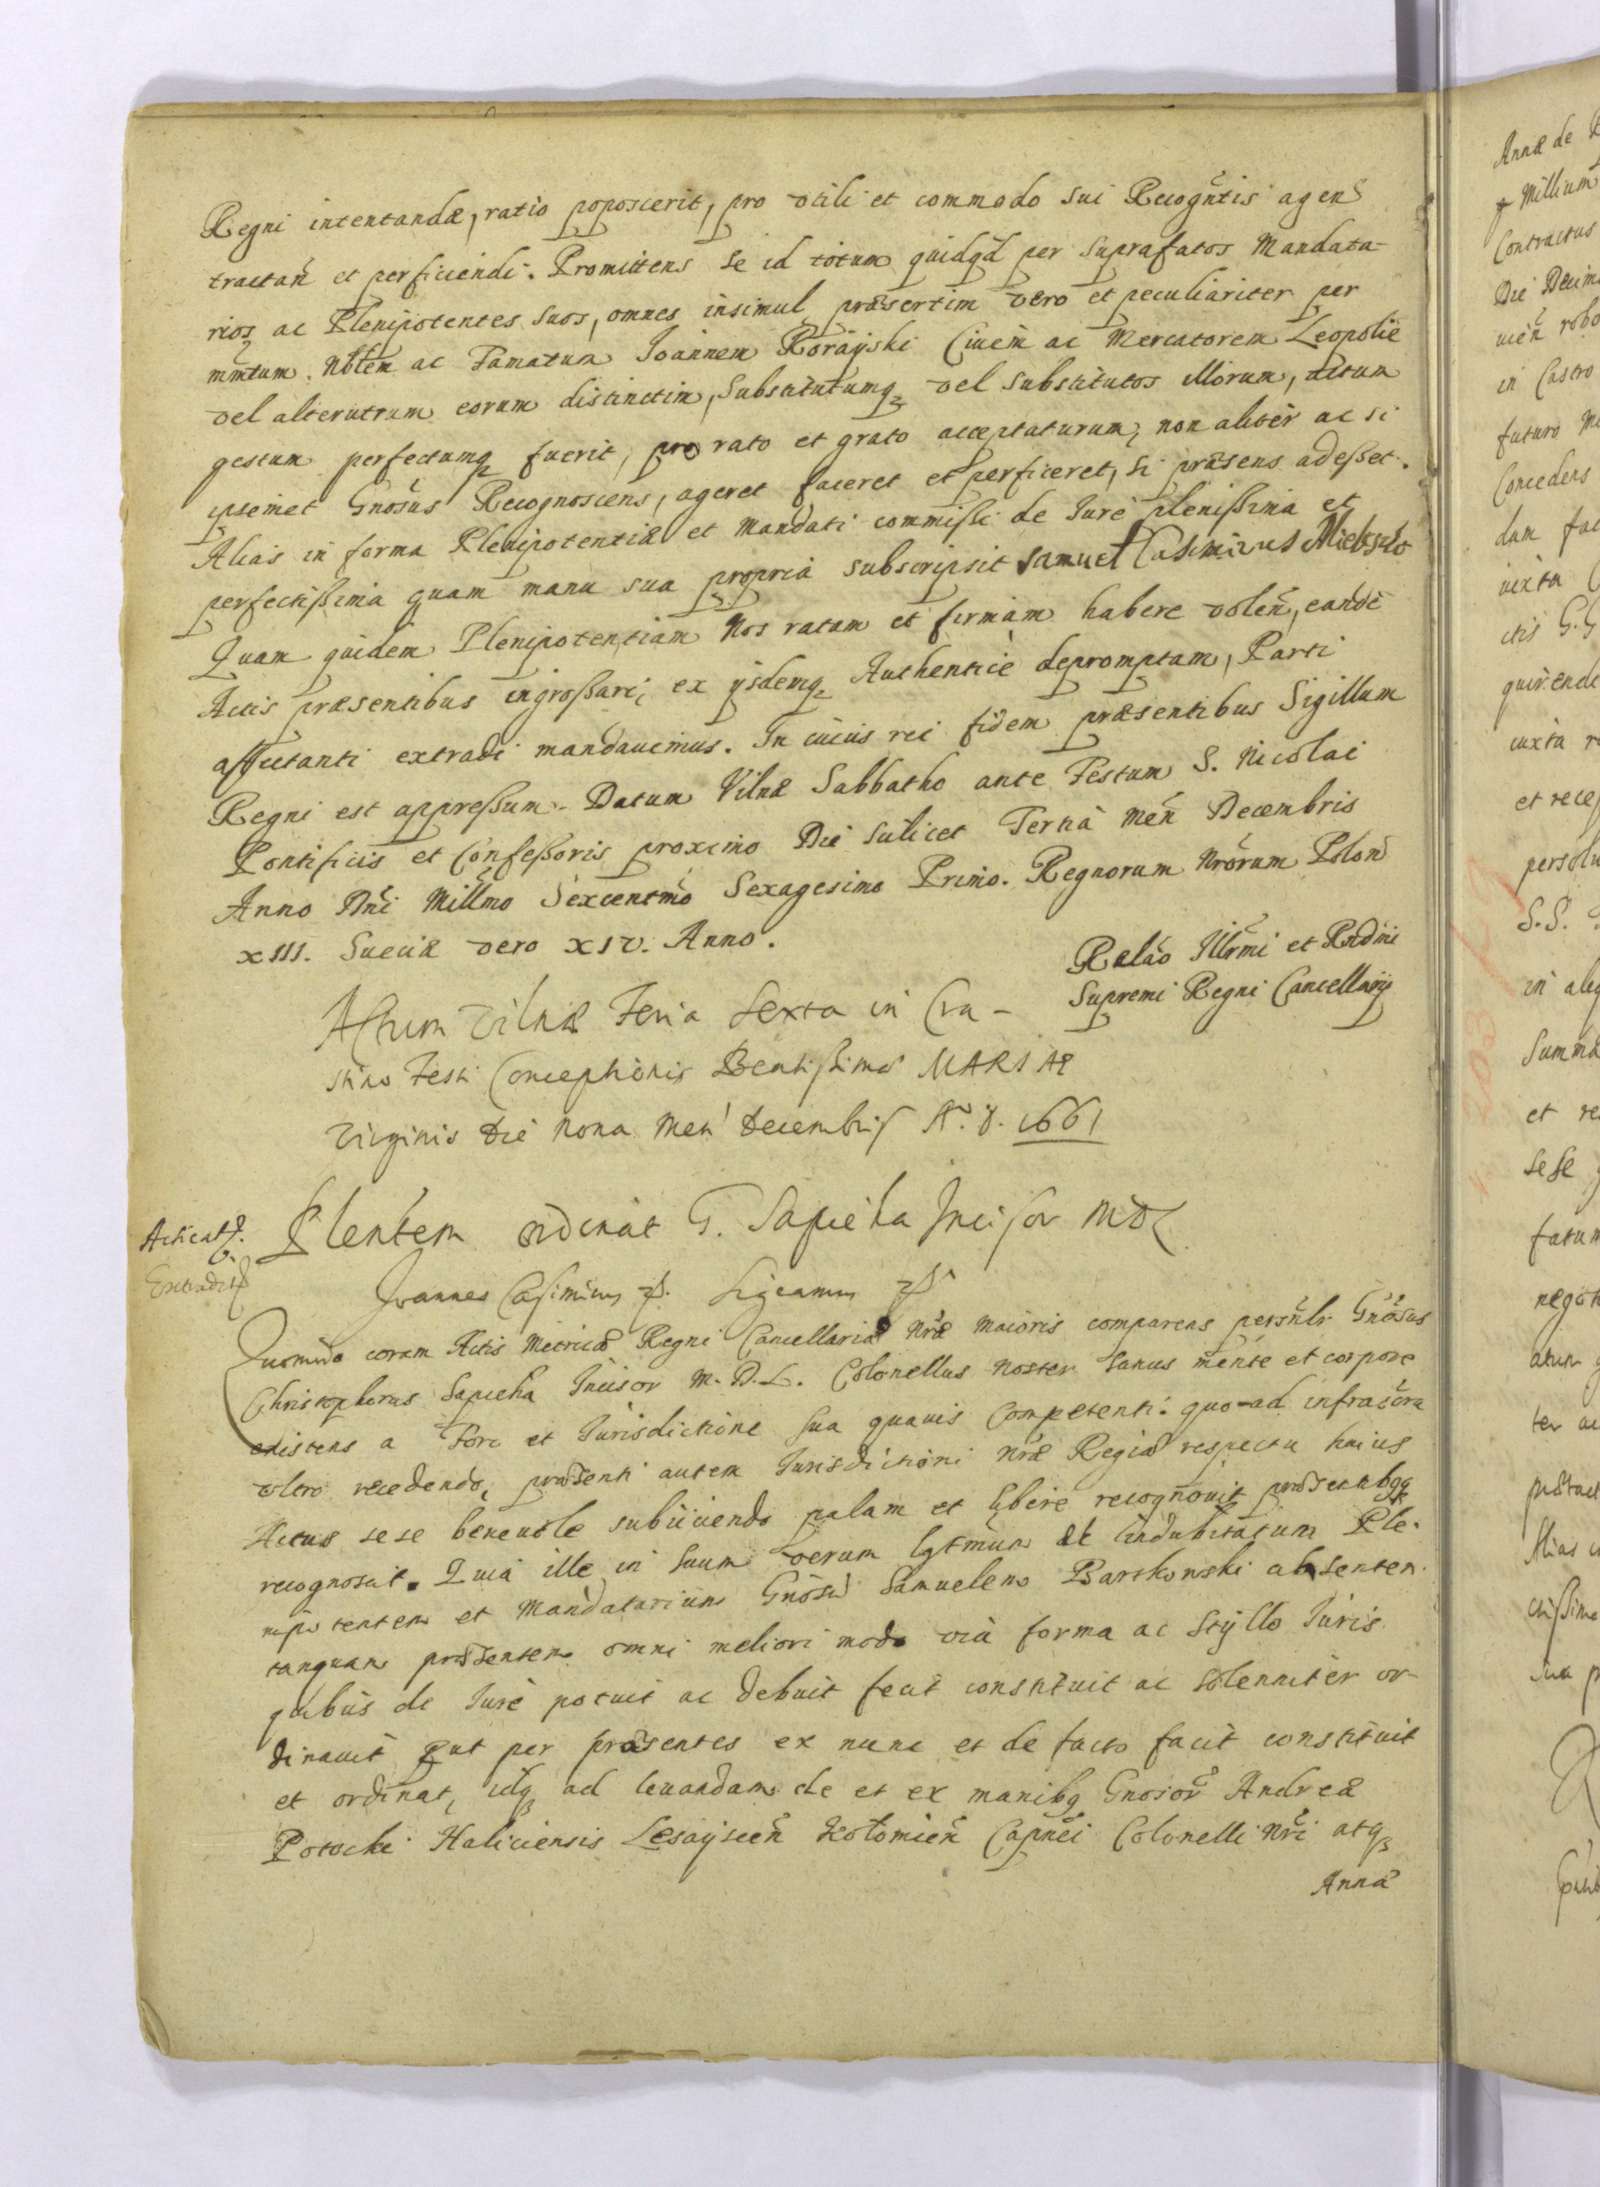 Regni intentandæ, ratio poposcerit, pro utili et commodo sui Recogñtis agen
tractañ et perficiendi. Promittens se id totum quidqd per suprafatos Mandata-
rios ac Plenipotentes suos, omnes insimul præsertim vero et peculiariter per
Nblem ac Famatum Joannem Korayski Civem ac Mercatorem Leopolie
vel alterutrum eorum distinctim, Substitutumq vel substitutos illorum, actum
gestum perfectumq fuerit, pro rato et grato acceptaturum, non aliter ac si
ipsemet Gnosus Recognoscens, ageret faceret et perficeret, si præsens adesset.
Alias in forma Plenipotentiæ et Mandati commissi de Jure plenissima et
perfectissima quam manu sua propria subscripsit Samuel Casimirus
Quam quidem Plenipotentiam Nos ratam et firmam habere voleñ, eandē
Actis præsentibus ingrossari, ex ijsdemq Authentice depromptam, Parti
affectanti extradi mandavimus. In cuius rei fidem præsentibus Sigillum
Regni est appressum. Datum Vilnæ Sabbatho ante Festum S. Nicolai
Pontificis et Confessoris proximo Die scilicet Tertia Meñ Decembris
Anno Dni Millmo Sexcentmo Sexagesimo Primo. Regnorum Nrorum Polon
XIII. Sueciæ vero XIV. Anno.
Relāo Illrmi et Rndmi
Supremi Regni Cancellarij
Actum Vilnæ Feria Sexta in Cra-
stino Festi Conceptionis Beatissimæ MARIÆ
Virginis Die Nona Men Decembris A. D. 1661
Plentem ordinat G. Sapieha Incisor MDL
Joannes Casimirus
Significamus
Quomodo coram Actis Metricæ Regni Cancellariæ Nræ Maioris comparens persñlr Gnosus
Christophorus Sapieha Incisor M. D. L. Colonellus Noster sanus mente et corpore
existens a Foro et Jurisdictione sua quavis Competenti quo-ad infrascra
ultro recedendo, præsenti autem Jurisdictioni Nræ Regiæ respectu huius
Actus sese benevole subijciendo palam et libere recognovit præsentibqq
recognoscit. Quia ille in suum verum lgtmum et indubitatum Ple-
nipotentem et Mandatarium Gnosū Samuelem Bartkowski absentem
tanquam præsentem omni meliori modo via forma ac Styllo Juris
quibus de Jure potuit ac debuit fecit constituit ac solenniter or-
dinavit put per præsentes ex nunc et de facto facit constituit
et ordinat, idq ad levandam de et ex manibq Gnosor Andreæ
Potocki Haliciensis Lesayscen Kolomień Capnei Colonelli Nri atq
Annæ